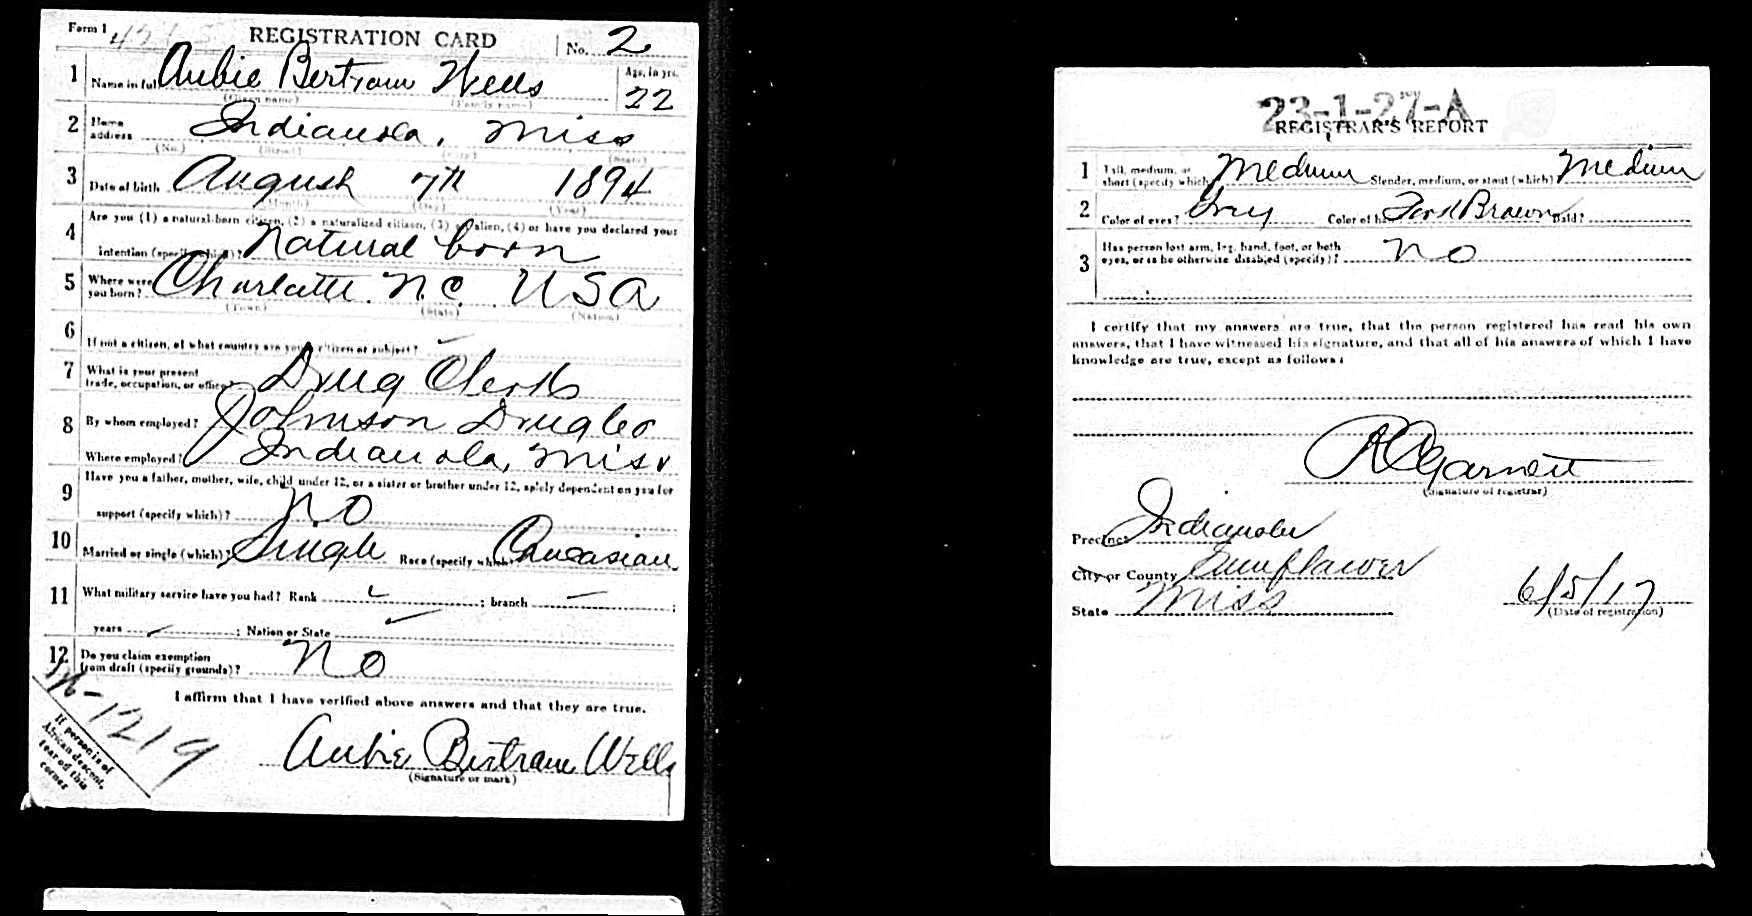 Form 1
REGISTRATION CARD
No. 2
1 Name in full Aubie Bertram Wells
Age, in yrs. 22
(Given name) (Family name)
2 Home address Indianola, Miss
(No.) (Street) (City) (State)
3 Date of birth August 7th 1894
(Month) (Day) (Year)
4 Are you (1) a natural-born citizen, (2) a naturalized citizen, (3) an alien, (4) or have you declared your
intention (specify which)? Natural born
5 Where were you born? Charlotte N.C. USA
(Town) (State) (Nation)
6 If not a citizen, of what country are you a citizen or subject?
7 What is your present trade, occupation, or office? Drug Clerk
8 By whom employed? Johnson Drug Co
Where employed? Indianola, Miss
9 Have you a father, mother, wife, child under 12, or a sister or brother under 12, solely dependent on you for
support (specify which)? No
10 Married or single (which)? Single Race (specify which)? Caucasian
11 What military service have you had? Rank ; branch ;
years ; Nation or State
12 Do you claim exemption from draft (specify grounds)? No
I affirm that I have verified above answers and that they are true.
Aubie Bertram Wells
(Signature or mark)
1219
If person is of
African descent,
tear off this
corner
23-1-27-A
REGISTRAR'S REPORT
1 Tall, medium, or short (specify which) Medium Slender, medium, or stout (which) Medium
2 Color of eyes? Grey Color of hair Dark Brown Bald?
3 Has person lost arm, leg, hand, foot, or both
eyes, or is he otherwise disabled (specify)? No
I certify that my answers are true, that the person registered has read his own
answers, that I have witnessed his signature, and that all of his answers of which I have
knowledge are true, except as follows:
Garnett
(Signature of registrar)
Precinct Indianola
City or County Sunflower
State Miss
6/5/17
(Date of registration)